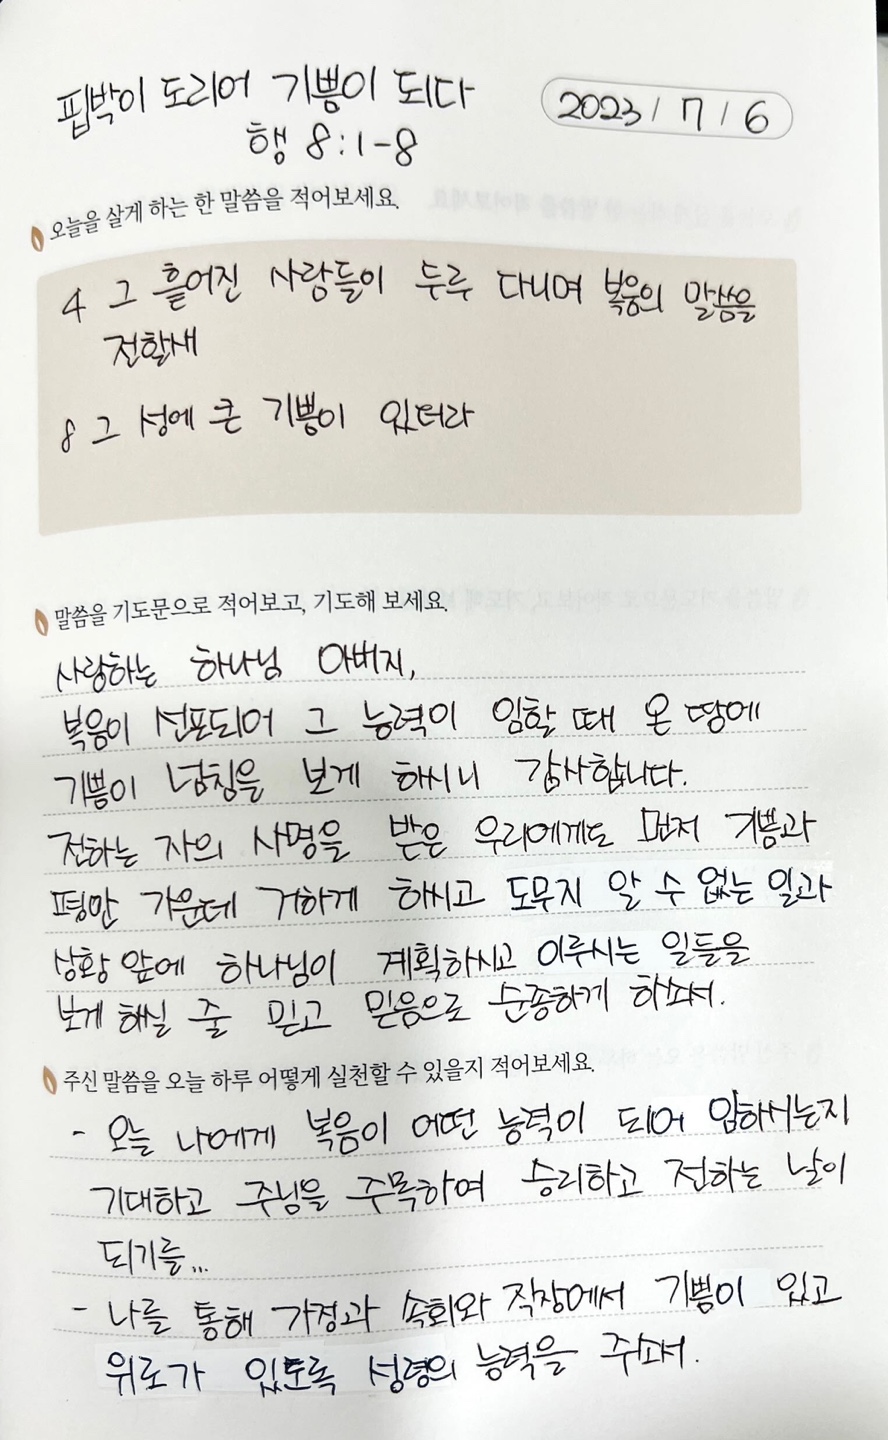 핍박이 도리어 기쁨이 되다
2023 / 7 / 6
행 8:1-8
오늘을 살게 하는 한 말씀을 적어보세요.
4 그 흩어진 사람들이 두루 다니며 복음의 말씀을
전할새
8 그 성에 큰 기쁨이 있더라
말씀을 기도문으로 적어보고, 기도해 보세요.
사랑하는 하나님 아버지,
복음이 선포되어 그 능력이 임할 때 온 땅에
기쁨이 넘침을 보게 하시니 감사합니다.
전하는 자의 사명을 받은 우리에게도 먼저 기쁨과
평안 가운데 거하게 하시고 도무지 알 수 없는 일과
상황 앞에 하나님이 계획하시고 이루시는 일들을
보게 하실 줄 믿고 믿음으로 순종하게 하소서.
주신 말씀을 오늘 하루 어떻게 실천할 수 있을지 적어보세요.
- 오늘 나에게 복음이 어떤 능력이 되어 임하시는지
기대하고 주님을 주목하여 승리하고 전하는 날이
되기를...
- 나를 통해 가정과 속회와 직장에서 기쁨이 있고
위로가 있도록 성령의 능력을 주소서.